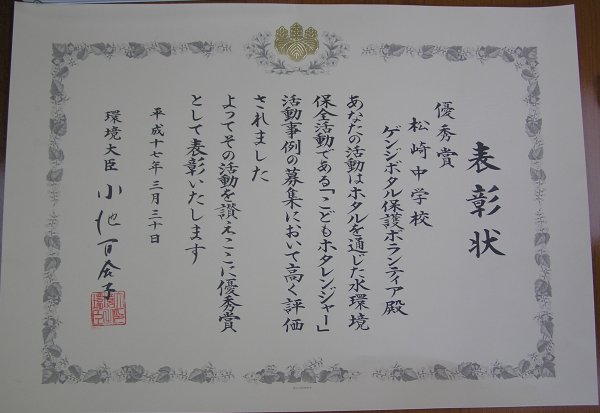 表彰状
優秀賞
松崎中学校
ゲンジボタル保護ボランティア殿
あなたの活動はホタルを通じた水環境
保全活動である「こどもホタレンジャー」
活動事例の募集において高く評価
されました
よってその活動を讃えここに優秀賞
として表彰いたします
平成十七年三月三十日
環境大臣 小池百合子